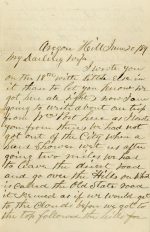 Hill June 20
My Darling Wife
I wrote you
on the 18th with little else in
it than to let you know we
got here all right & now I am
going to write about our trip
from here as I told
you from there we had not
got out of the City when a
hard shower wet us after
going two miles we had
to leave the direct road
and go over the Hills on what
is called the Old State road
it seemed as if we would get
to the Clouds before we got to
the top followed the